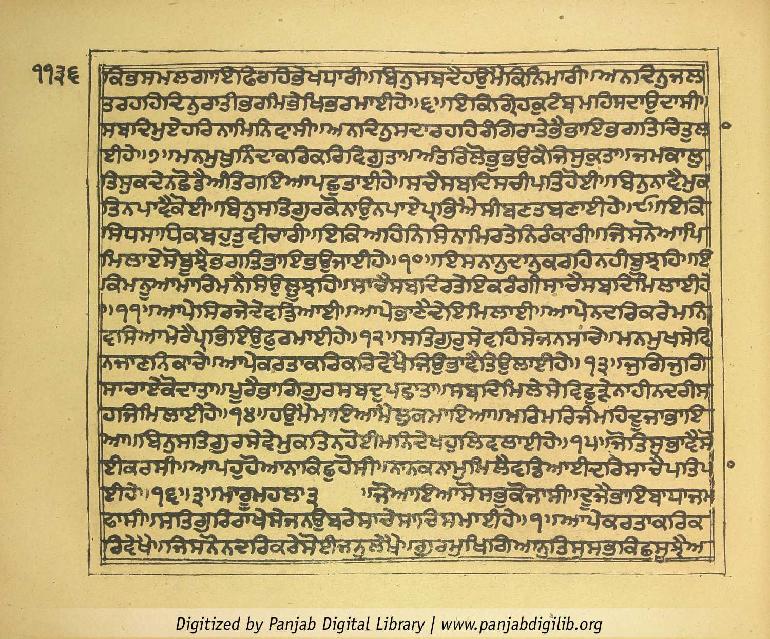 ੧੧੩੬
ਕਿਭਸਮਲਗਾਇਫਿਰਹਿਭੇਖਧਾਰੀ॥ਬਿਨੁਸਬਦੈਹਉਮੈਕਿਨਿਮਾਰੀ॥ਅਨਦਿਨੁਜਲਤ
ਰਹਹਿਦਿਨੁਰਾਤੀਭਰਮਿਭੇਖਿਭਰਮਾਈਹੇ॥੬॥ਇਕਿਗ੍ਰਿਹਕੁਟੰਬਮਹਿਸਦਾਉਦਾਸੀ॥
ਸਬਦਿਮੁਏਹਰਿਨਾਮਿਨਿਵਾਸੀ॥ਅਨਦਿਨੁਸਦਾਰਹਹਿਰੰਗਿਰਾਤੇਭੈਭਾਇਭਗਤਿਚਿਤੁਲਾ
ਈਹੇ॥੭॥ਮਨਮੁਖੁਨਿੰਦਾਕਰਿਕਰਿਵਿਗੁਤਾ॥ਅੰਤਰਿਲੋਭੁਭਉਕੈਜਿਸੁਕੁਤਾ॥ਜਮਕਾਲੁ
ਤਿਸੁਕਦੇਨਛੋਡੈਅੰਤਿਗਇਆਪਛੁਤਾਈਹੇ॥੮॥ਸਚੈਸਬਦਿਸਚੀਪਤਿਹੋਈ॥ਬਿਨੁਨਾਵੈਮੁਕ
ਤਿਨਪਾਵੈਕੋਈ॥ਬਿਨੁਸਤਿਗੁਰਕੋਨਾਉਨਪਾਏਪ੍ਰਭਿਐਸੀਬਣਤਬਣਾਈਹੇ॥੯॥ਇਕਿ
ਸਿਧਸਾਧਿਕਬਹੁਤੁਵੀਚਾਰੀ॥ਇਕਿਅਹਿਨਿਸਿਨਾਮਿਰਤੇਨਿਰੰਕਾਰੀ॥ਜਿਸਨੋਆਪਿ
ਮਿਲਾਏਸੋਬੂਝੈਭਗਤਿਭਾਇਭਉਜਾਈਹੇ॥੧੦॥ਇਸਨਾਨੁਦਾਨੁਕਰਹਿਨਹੀਬੂਝਹਿ॥ਇ
ਕਿਮਨੂਆਮਾਰਿਮਨੈਸਿਉਲੂਝਹਿ॥ਸਾਚੈਸਬਦਿਰਤੇਇਕਰੰਗੀਸਾਚੈਸਬਦਿਮਿਲਾਈਹੇ
॥੧੧॥ਆਪੇਸਿਰਜੇਦੇਵਡਿਆਈ॥ਆਪੇਭਾਣੈਦੇਇਮਿਲਾਈ॥ਆਪੇਨਦਰਿਕਰੇਮਨਿ
ਵਸਿਆਮੇਰੈਪ੍ਰਭਿਇਉਫੁਰਮਾਈਹੇ॥੧੨॥ਸਤਿਗੁਰੁਸੇਵਹਿਸੇਜਨਸਾਚੇ॥ਮਨਮੁਖਸੇਵਿ
ਨਜਾਣਨਿਕਾਚੇ॥ਆਪੇਕਰਤਾਕਰਿਕਰਿਵੇਖੈਜਿਉਭਾਵੈਤਿਉਲਾਈਹੇ॥੧੩॥ਜੁਗਿਜੁਗਿ
ਸਾਚਾਏਕੋਦਾਤਾ॥ਪੂਰੈਭਾਗਿਗੁਰਸਬਦੁਪਛਾਤਾ॥ਸਬਦਿਮਿਲੇਸੇਵਿਛੁੜੇਨਾਹੀਨਦਰੀਸ
ਹਜਿਮਿਲਾਈਹੇ॥੧੪॥ਹਉਮੈਮਾਇਆਮੈਲੁਕਮਾਇਆ॥ਮਰਿਮਰਿਜੰਮਹਿਦੂਜਾਭਾਇ
ਆ॥ਬਿਨੁਸਤਿਗੁਰਸੇਵੇਮੁਕਤਿਨਹੋਈਮਨਿਦੇਖਹੁਲਿਵਲਾਈਹੇ॥੧੫॥ਜੋਤਿਸੁਭਾਵੈਸੋ
ਈਕਰਸੀ॥ਆਪਹੁਹੋਆਨਾਕਿਛੁਹੋਸੀ॥ਨਾਨਕਨਾਮੁਮਿਲੈਵਡਿਆਈਦਰਿਸਾਚੈਪਤਿਪਾ
ਈਹੇ॥੧੬॥੩॥ਮਾਰੂਮਹਲਾ੩ ॥ਜੋਆਇਆਸੋਸਭੁਕੋਜਾਸੀ॥ਦੂਜੈਭਾਇਬਾਧਾਜਮ
ਫਾਸੀ॥ਸਤਿਗੁਰਿਰਾਖੇਸੇਜਨਉਬਰੇਸਾਚੇਸਾਚਿਸਮਾਈਹੇ॥੧॥ਆਪੇਕਰਤਾਕਰਿਕ
ਰਿਵੇਖੈ॥ਜਿਸਨੋਨਦਰਿਕਰੇਸੋਈਜਨੁਲੇਖੈ॥ਗੁਰਮੁਖਿਗਿਆਨੁਤਿਸੁਸਭਕਿਛੁਸੂਝੈਅ
Digitized by Panjab Digital Library | www.panjabdigilib.org